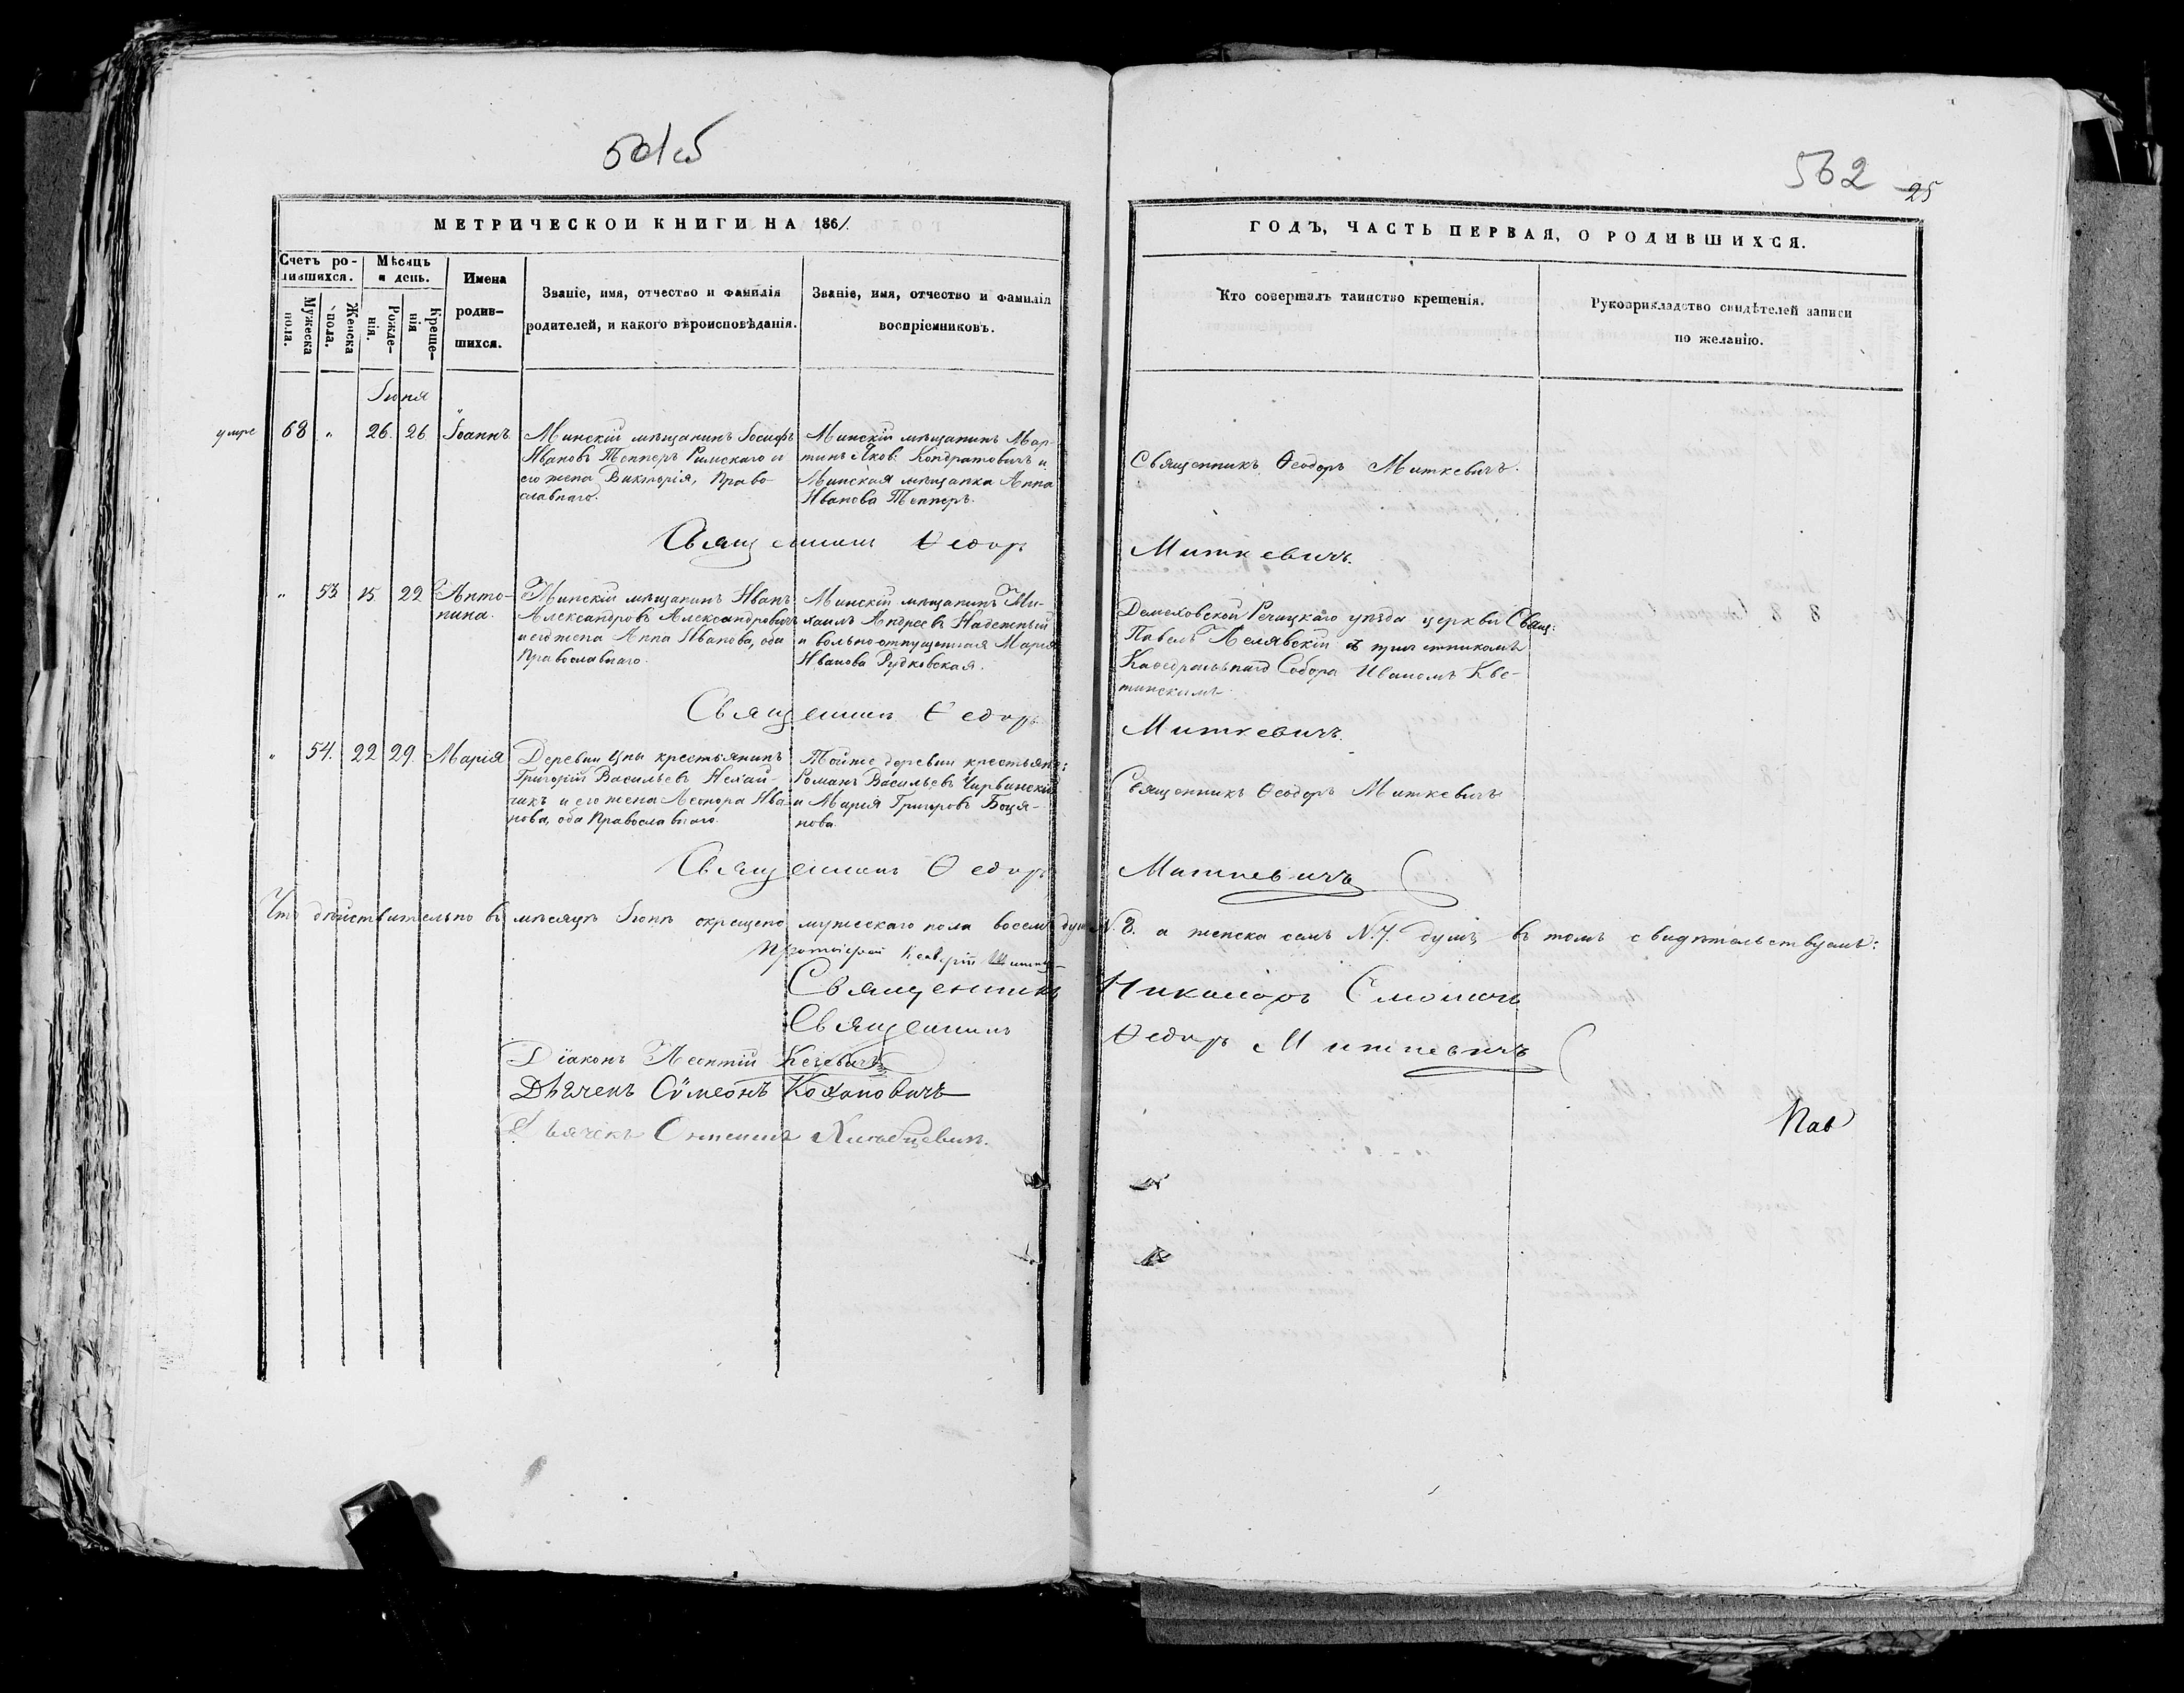 562 25
МЕТРИЧЕСКОЙ КНИГИ НА 1861.
Счетъ ро-
дившихся.
Мѣсяцъ
и день.
Мужеска
пола.
Женска
пола.
Рожде-
нія.
Креще-
нія
Имена
родив-
шихся.
Званіе, имя, отчество и фамилія
родителей, и какого вѣроисповѣданія.
Званіе, имя, отчество и фамилія
воспріемниковъ.
ГОДЪ, ЧАСТЬ ПЕРВАЯ, О РОДИВШИХСЯ.
Кто совершалъ таинство крещенія.
Рукоприкладство свидѣтелей записи
по желанію.
Іюня
умре 68 " 26. 26 Іоаннъ
Минскій мѣщанинъ Іосифъ
Ивановъ Тепперъ Римскаго и
его жена Викторія, Право-
славнаго.
Минскій мѣщанинъ Мар-
тинъ Яков: Кондратовичъ и
Минская мѣщанка Анна
Иванова Тепперъ.
Священникъ Ѳеодоръ Миткевичъ.
Священникъ Ѳедоръ Миткевичъ.
" 53 15. 22 Анто-
нина.
Минскій мѣщанинъ Иванъ
Александровъ Александровичъ
и его жена Анна Иванова, оба
Православнаго.
Минскій мѣщанинъ Ми-
хаилъ Андреевъ Надежный
и вольноотпущенная Марія
Иванова Рудковская.
Демеховской Речицкаго уѣзда церкви Свящ:
Павелъ съ причетникомъ
Кафедральнаго Собора Иваномъ Кве-
тинскимъ.
Священникъ Ѳедоръ Миткевичъ.
" 54. 22 29. Марія
Деревни Цны крестьянинъ
Григорій Васильевъ Нехай-
чикъ и его жена Леонора Ива-
нова, оба Православнаго.
Тойже деревни крестьяне:
Романъ Васильевъ Чирвинскій
и Марія Григоровъ Боця-
нова.
Священникъ Ѳеодоръ Миткевичъ
Священникъ Ѳедоръ Миткевичъ
Что дѣйствительно въ мѣсяцѣ Іюнѣ окрещено мужескаго пола восемь душъ N. 8. а женска семь N. 7. душъ въ томъ свидѣтельствуемъ:
Протоіерей
Священникъ Никаноръ Смоличъ
Священникъ Ѳедоръ Миткевичъ
Діаконъ Леонтій
Дьячекъ Сѵмеонъ Кохановичъ
Дьячекъ
Пав